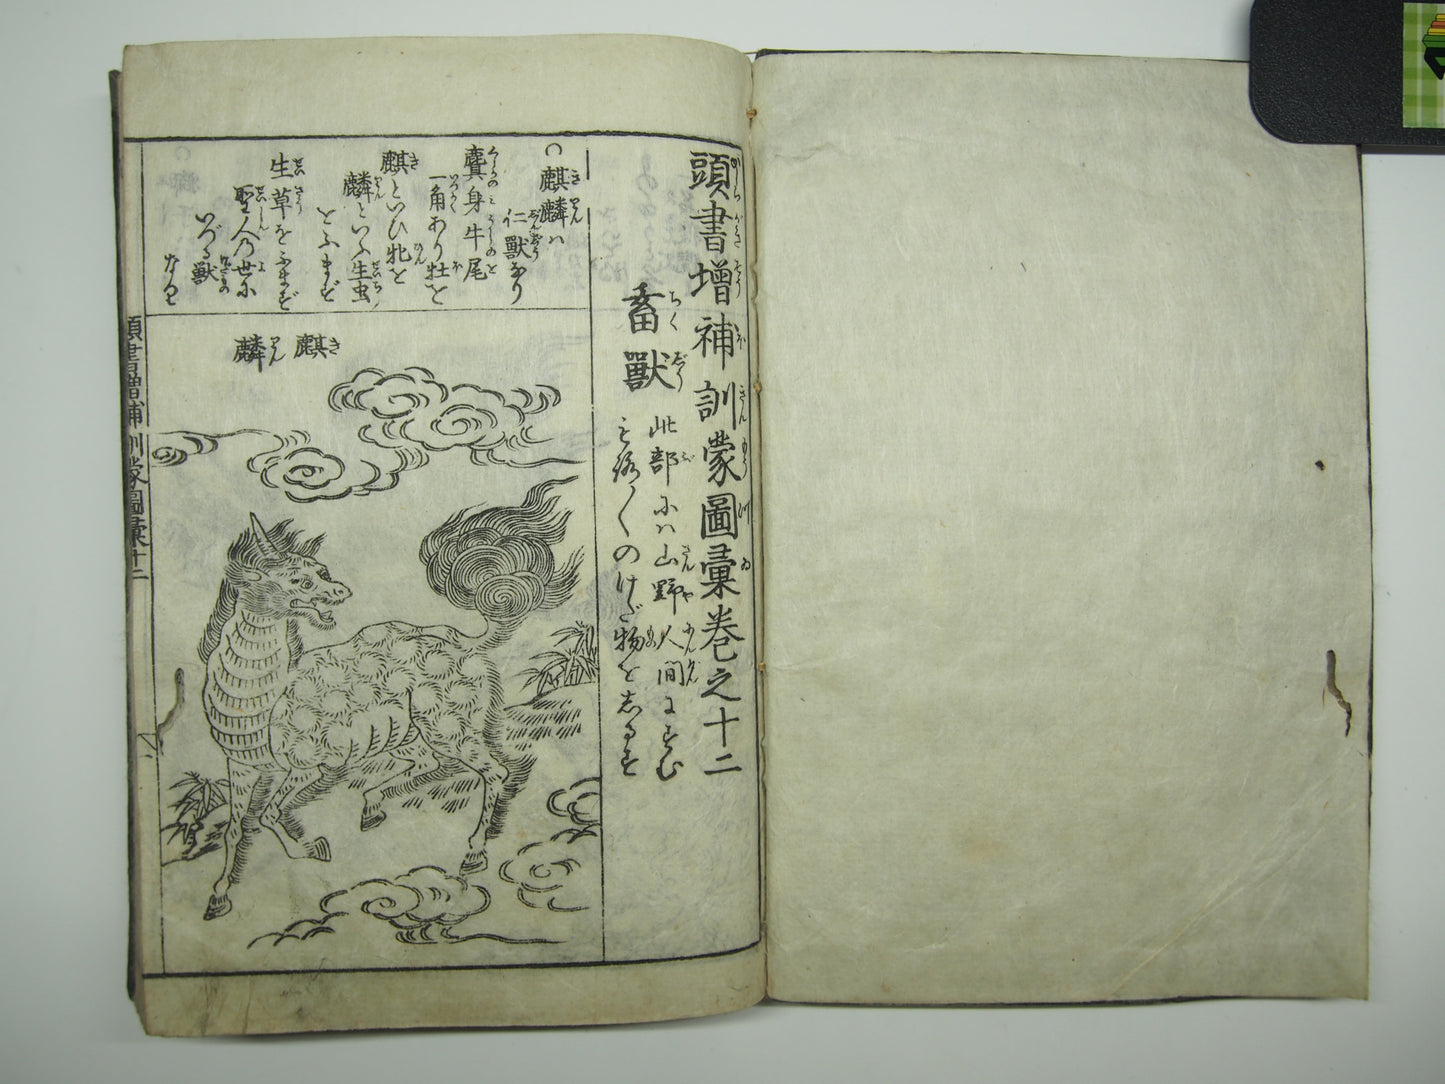 頭書増補訓蒙圖彙巻之十二
畜獣
此部にハ山野人間にすむ
もろ〳〵のけだ物をしるす
○麒麟ハ
仁獣なり
麕身牛尾
一角あり牡を
麒といひ牝を
麟といふ生虫
をふまず
生草をふまず
聖人の世に
いづる獣
なり
麒麟
頭書増補訓蒙圖彙十二